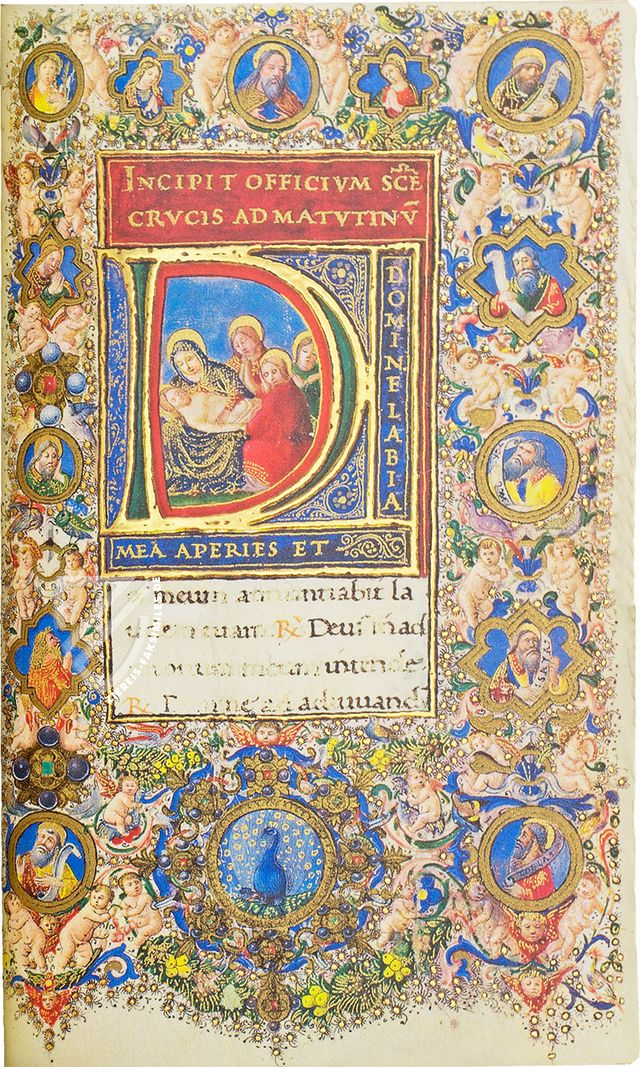 INCIPIT OFFICIVM SCE
CRVCIS AD MATVTINV̄
DOMINE LABIA
MEA APERIES ET
meum annuntiabit la
tuam R Deus in ad
meum intende
R ad adiuuand